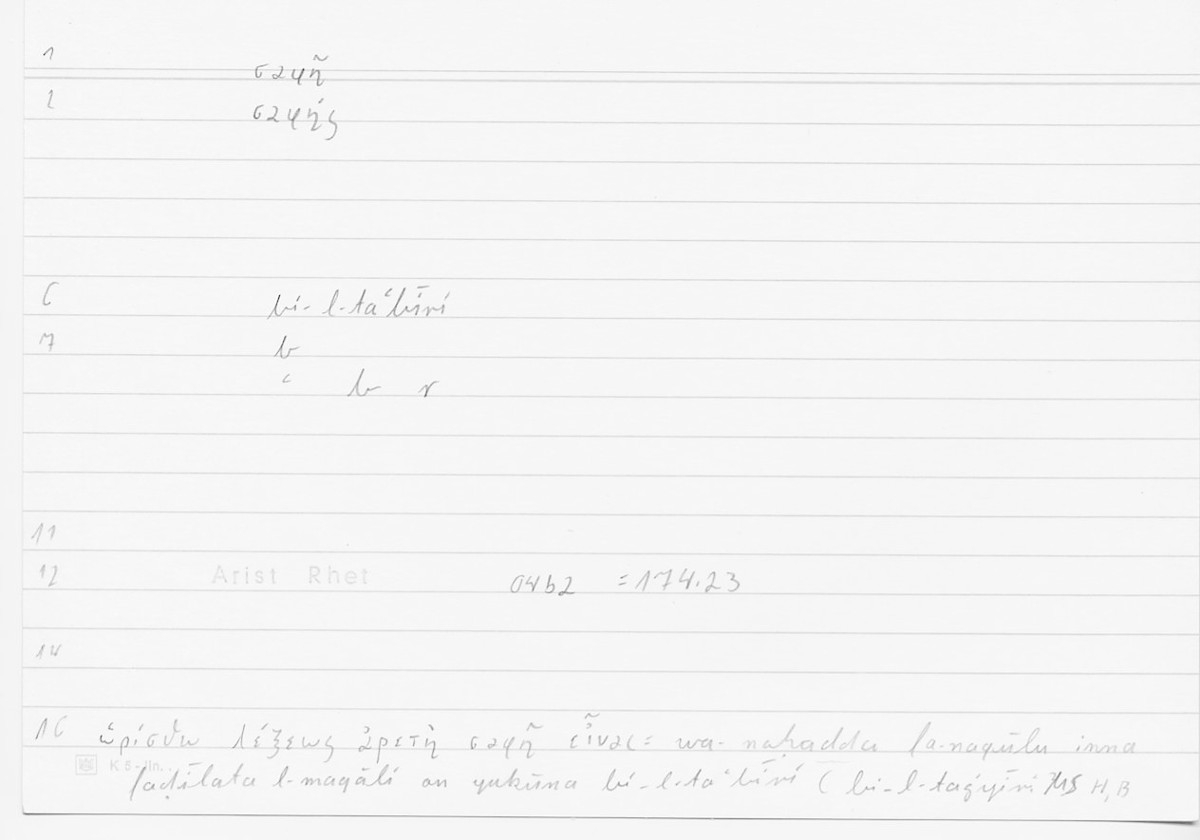 1 σαφῆ
2 σαφής
6 bi-l-taʿbīri
7 b
ʿ b r
11
12 Arist Rhet 04b2 =174.23
14
16 ὡρίσθω λέξεως ἀρετὴ σαφῆ εἶναι = wa-naḥadda fa-naqūlu inna
K5-lin.
faḍīlata l-maqāli an yakūna bi-l-taʿbīri ( bi-l-taġyīri MS H, B